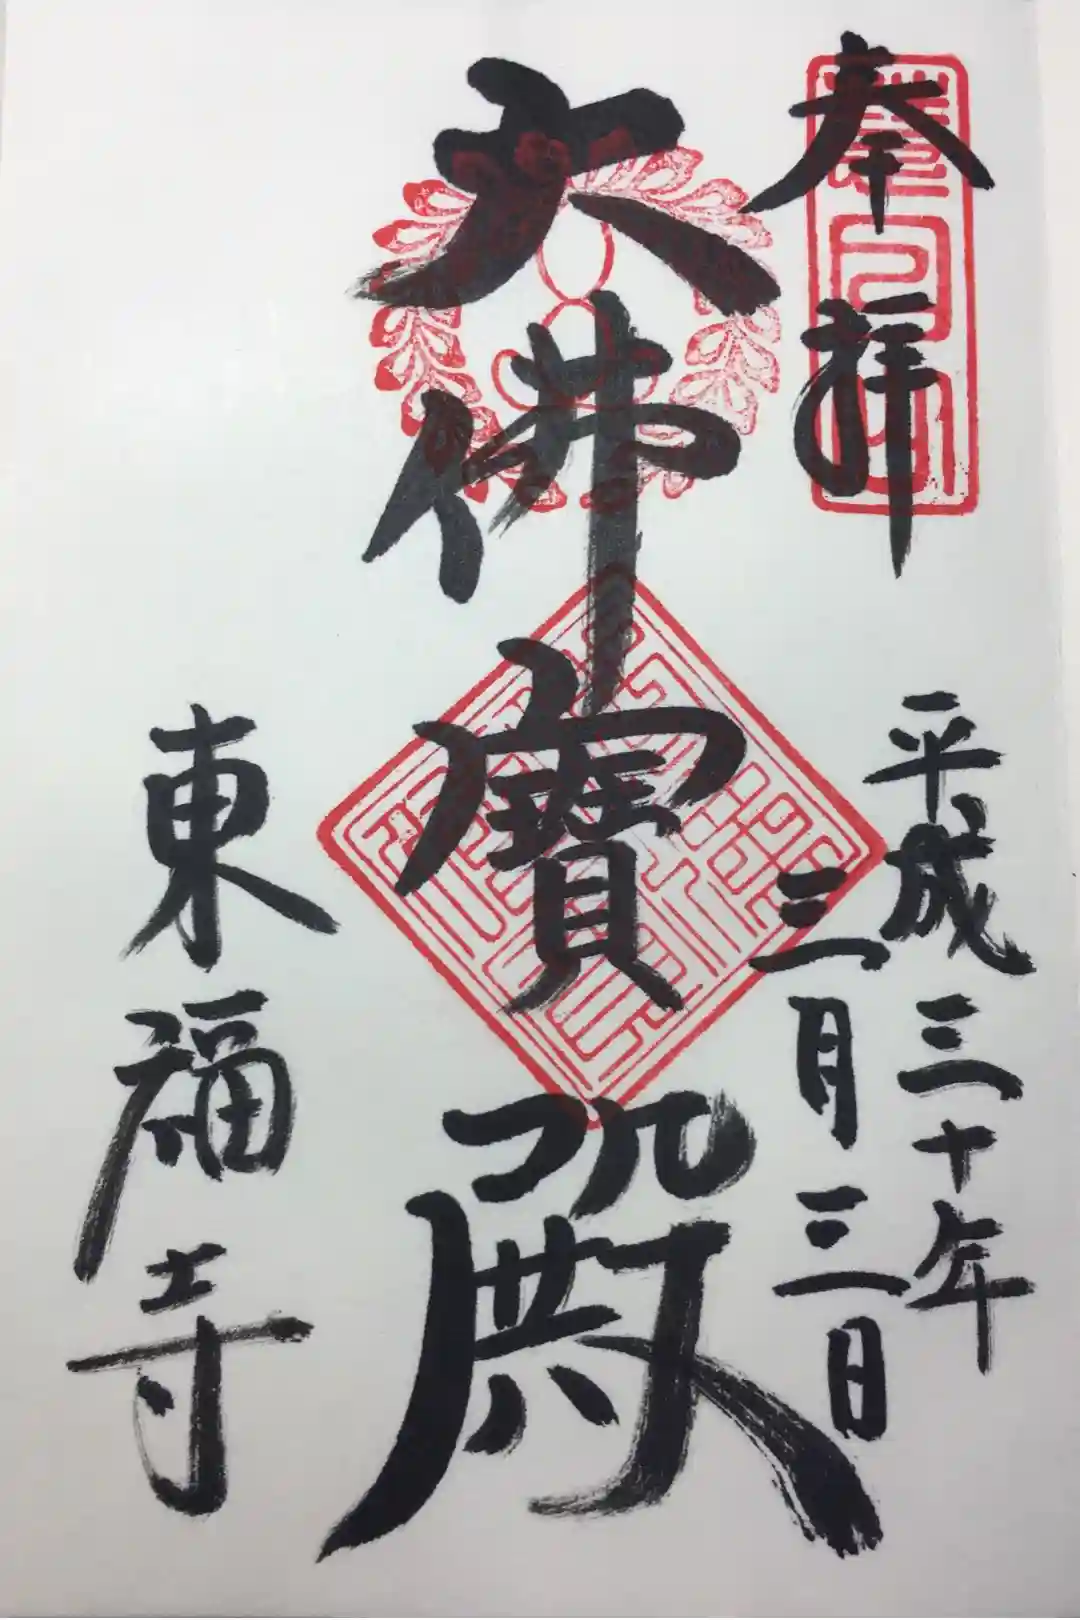 奉拝
平成三十年
三月三日
大佛寳殿
東福寺